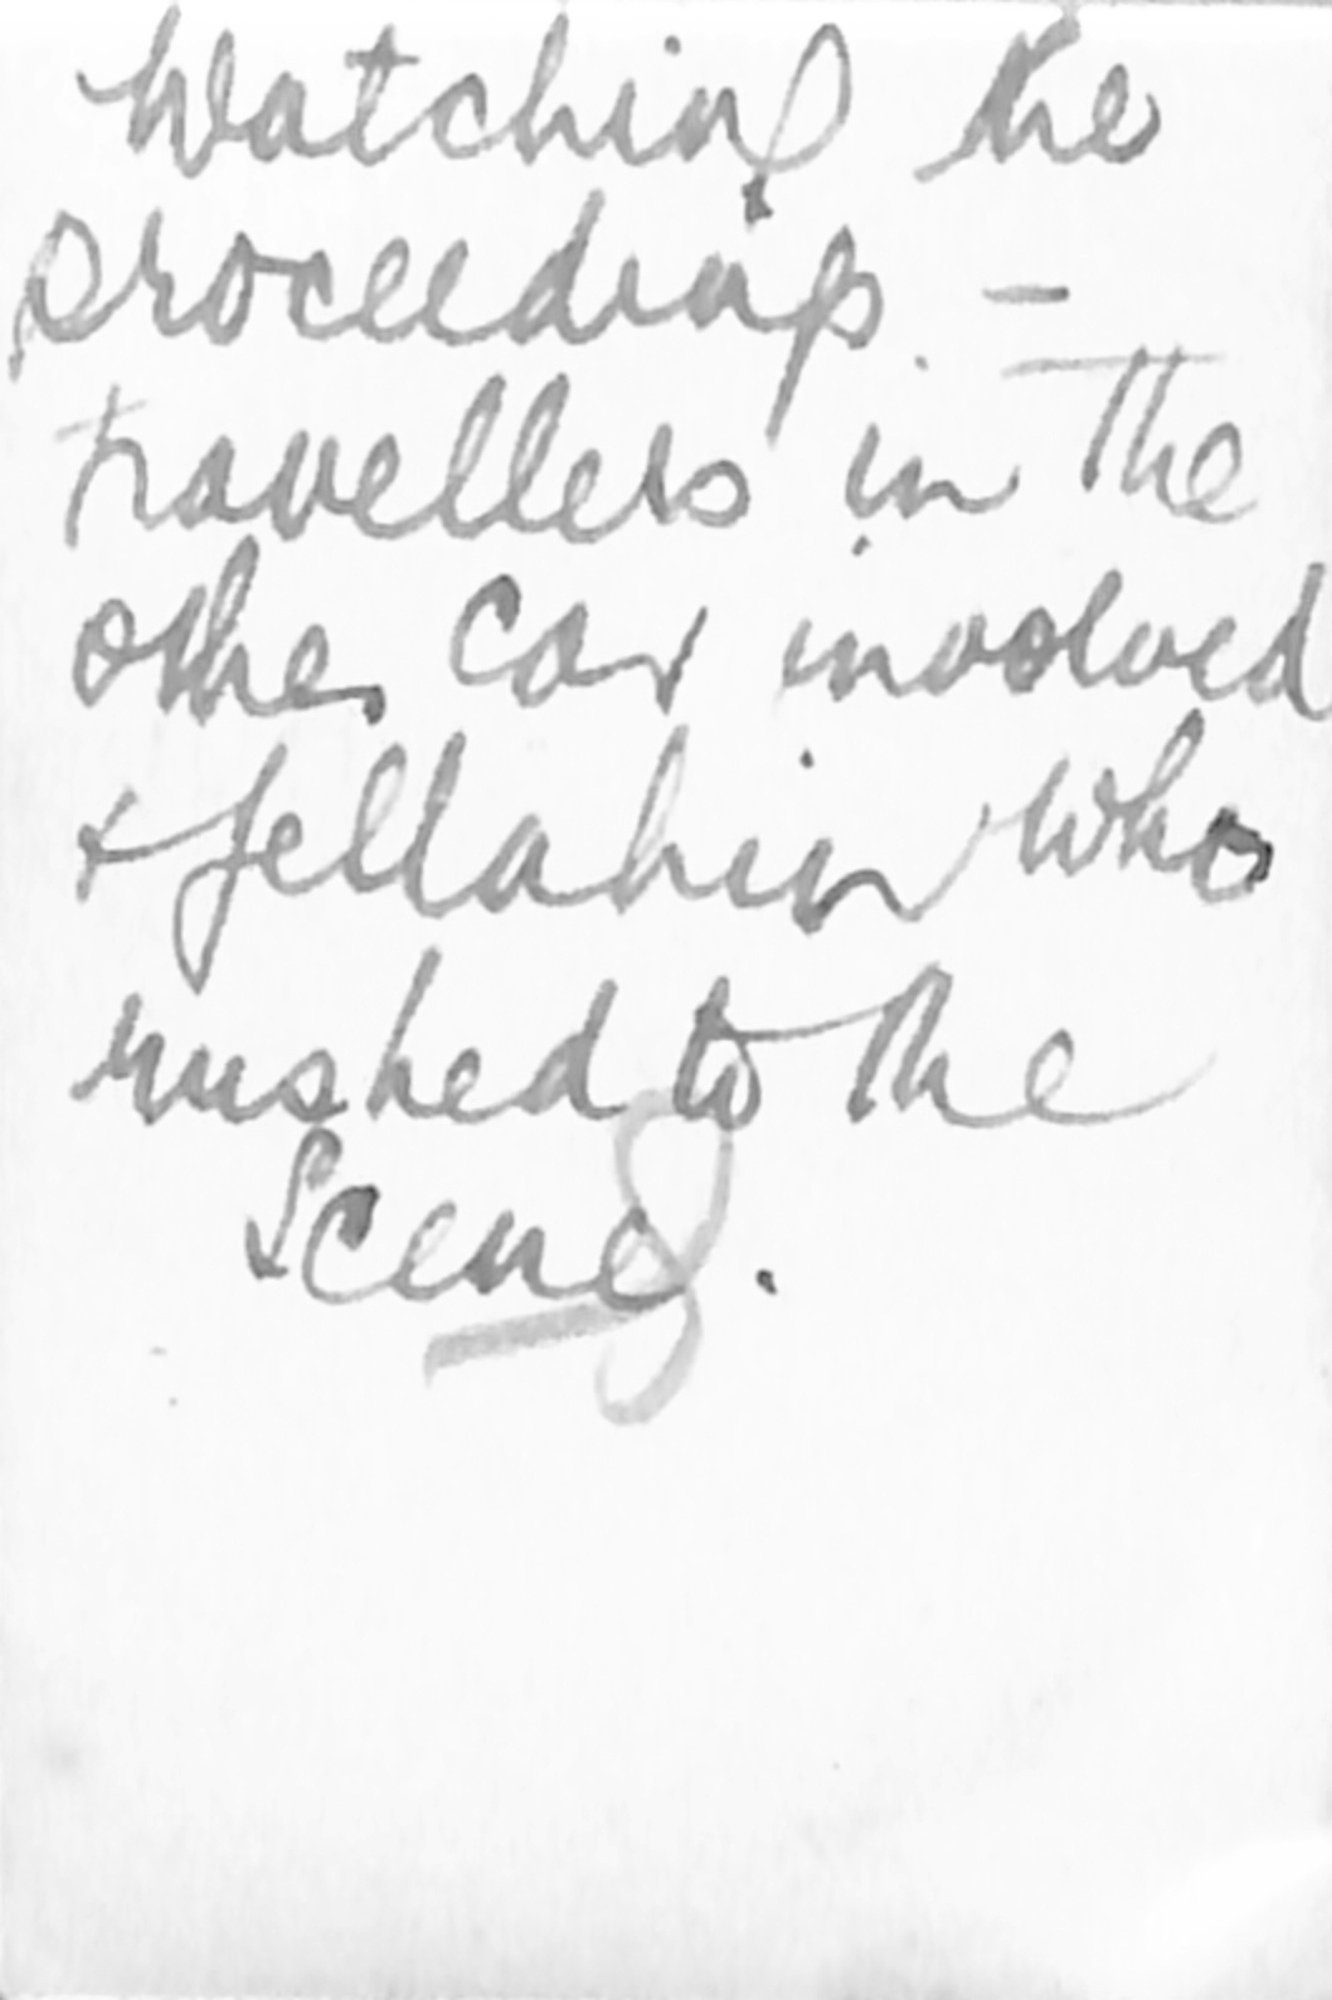 Watching the
proceedings. -
travellers in the
other car involved
& fellahin who
rushed to the
scene.